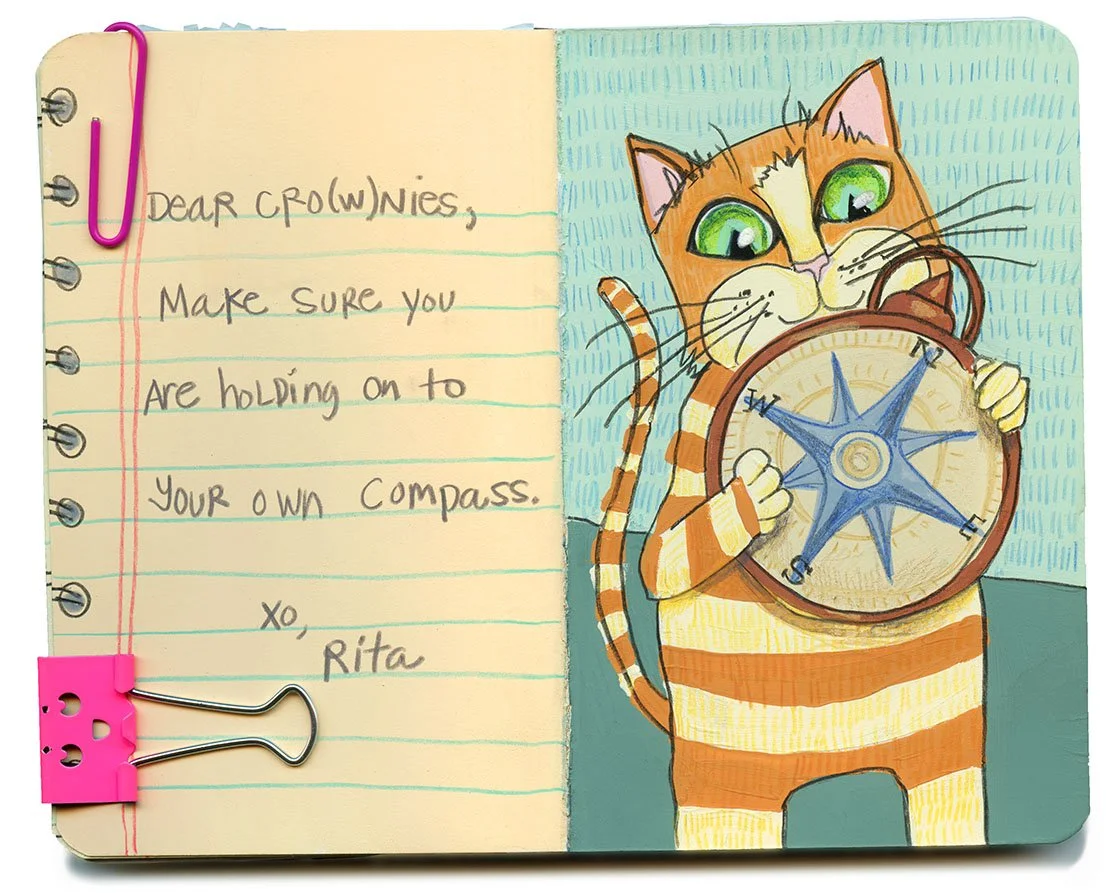 Dear Cro(w)nies,
Make sure you
are holding on to
your own compass.
xo,
Rita
N
W
E
S